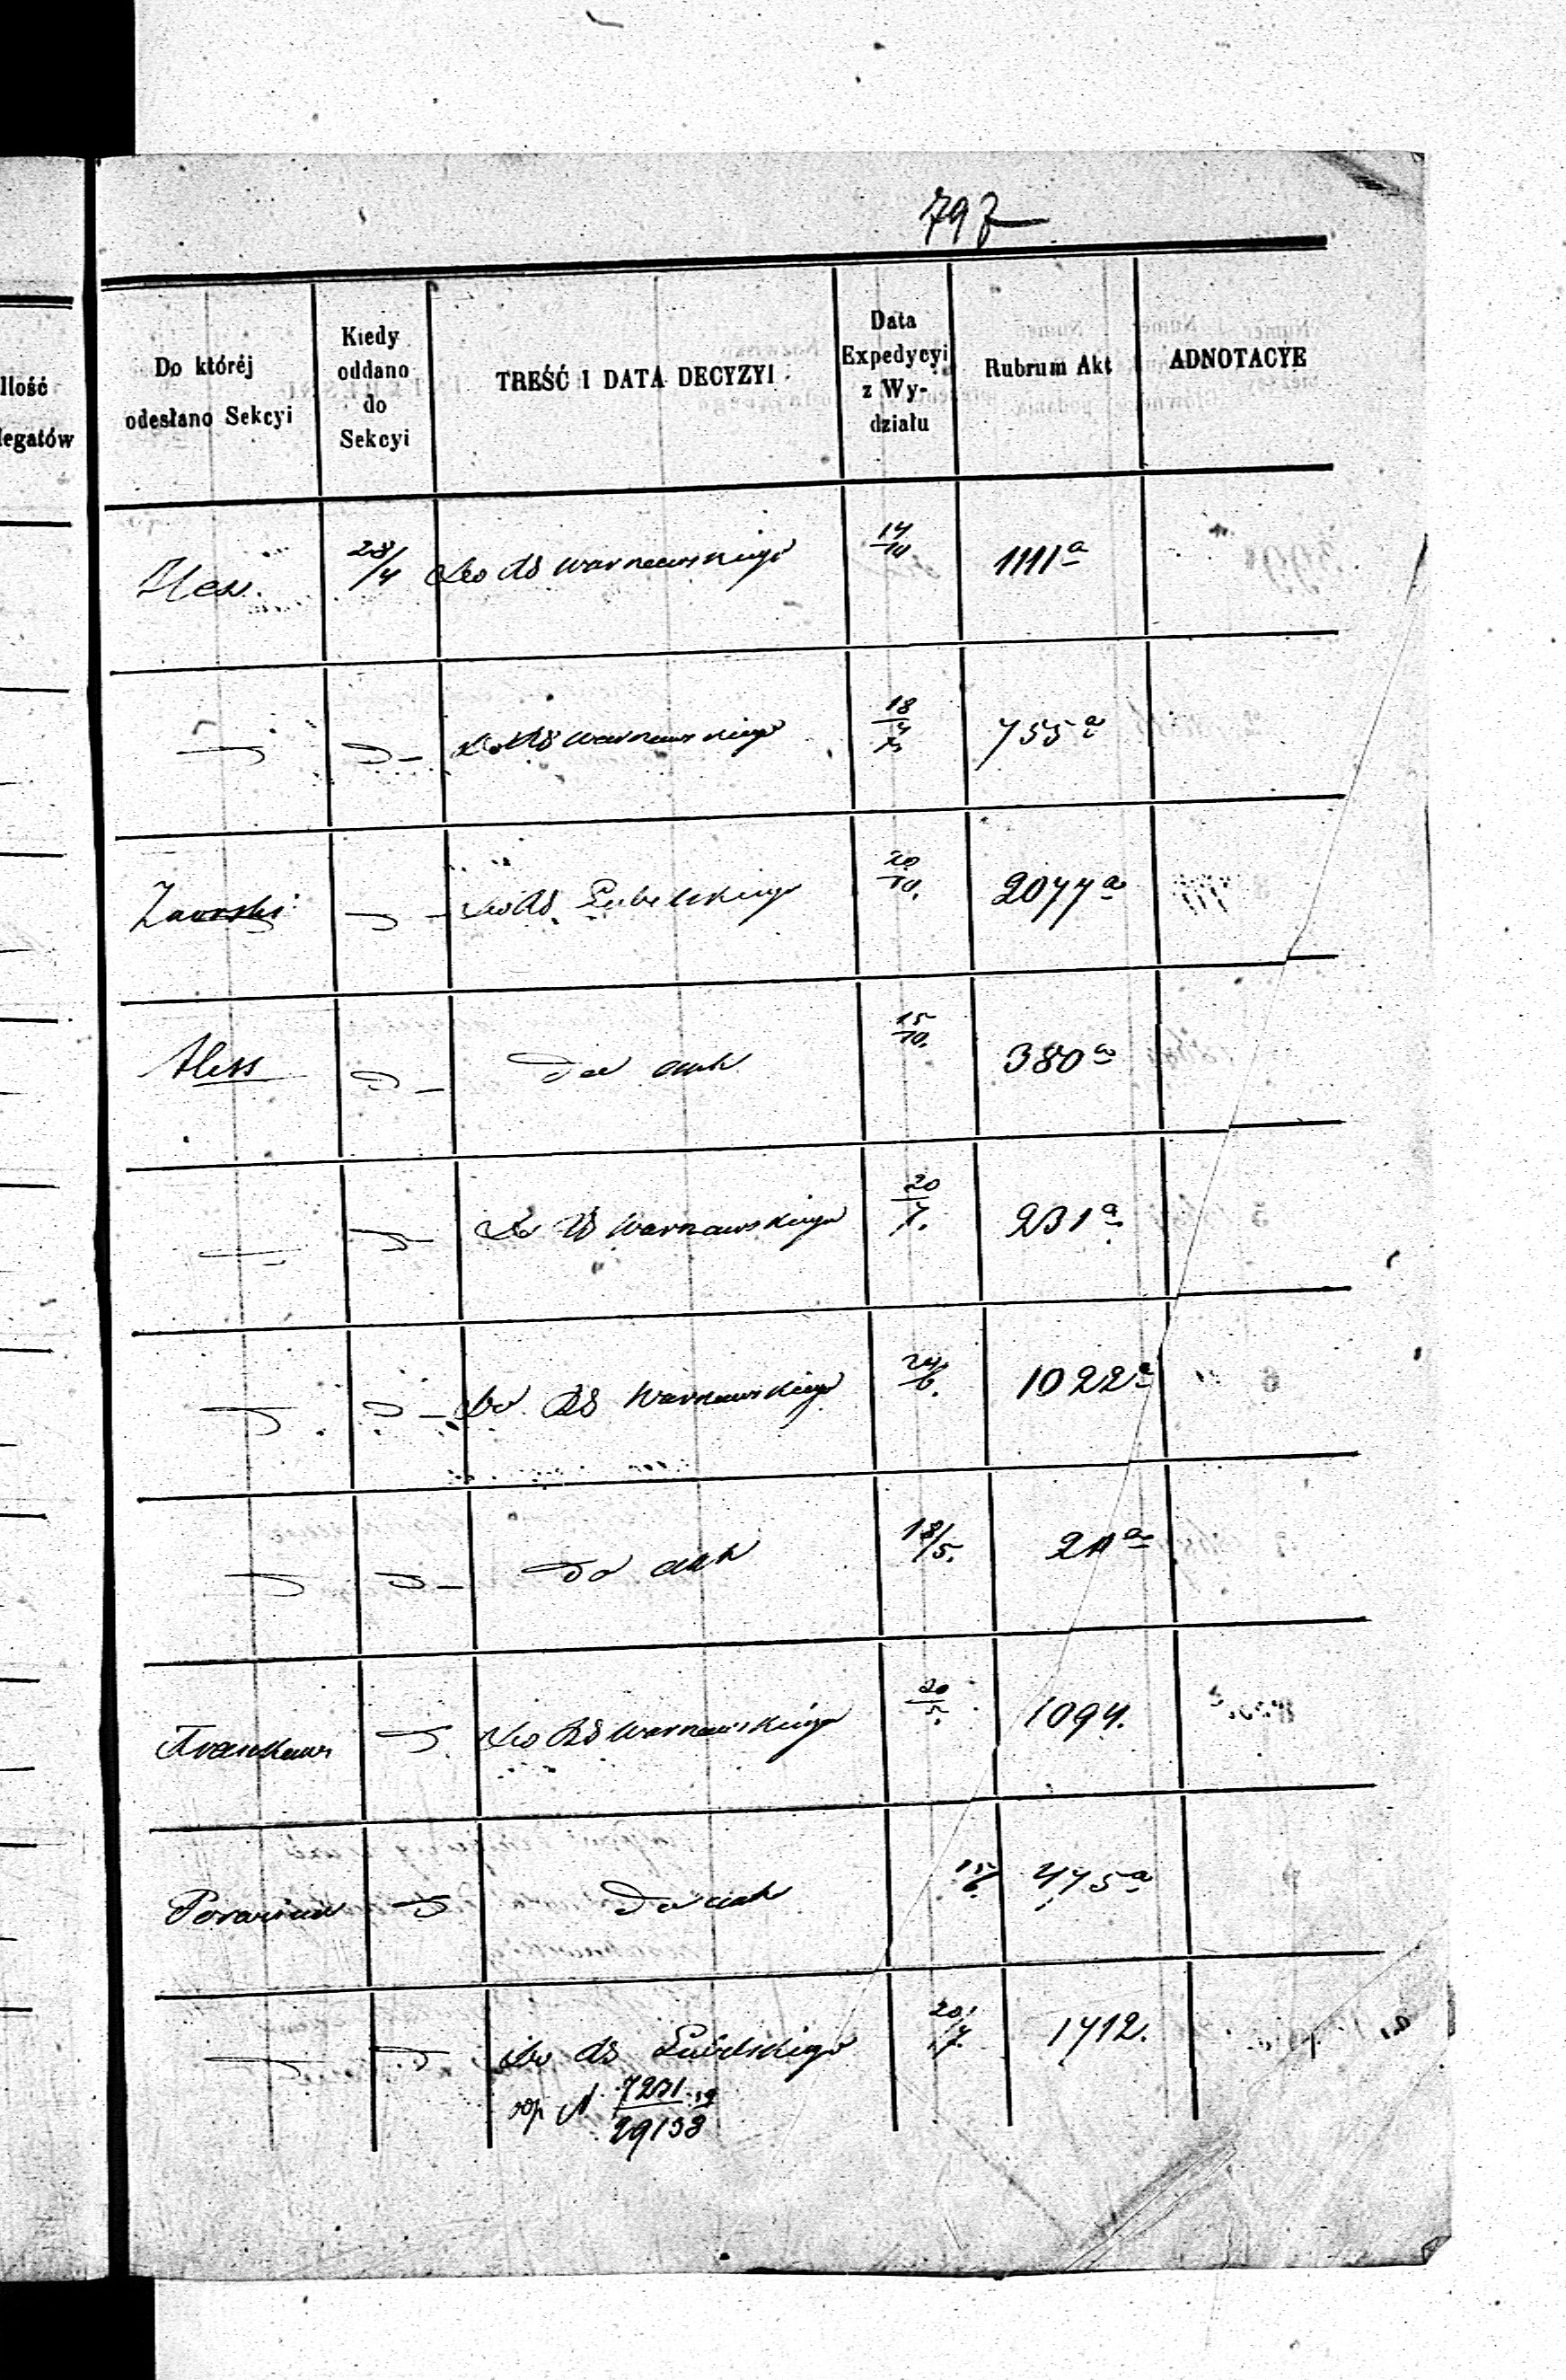 797
Ilość
legatów
Do któréj
odesłano Sekcyi
Kiedy
oddano
do
Sekcyi
TREŚĆ I DATA DECYZYI
Data
Expedycyi
z Wy-
działu
Rubrum Akt
ADNOTACYE
Hess. 28/4 Do RG Warszawskiego 14/10 1111a
Do RG Warszawskiego 18/7 755a
Zaorski Do RG Lubelskiego 20/10. 2077a
Hess Do akt 15/10. 380a
Do RG Warszawskiego 20/7. 231a
Do RG Warszawskiego 24/6. 1022a
Do akt 18/5. 211a
Do RG Warszawskiego 20/5. 1094.
Do akt 15/6 475a
Do RG Lubelskiego 20/7. 1712.
N. 7231/29138